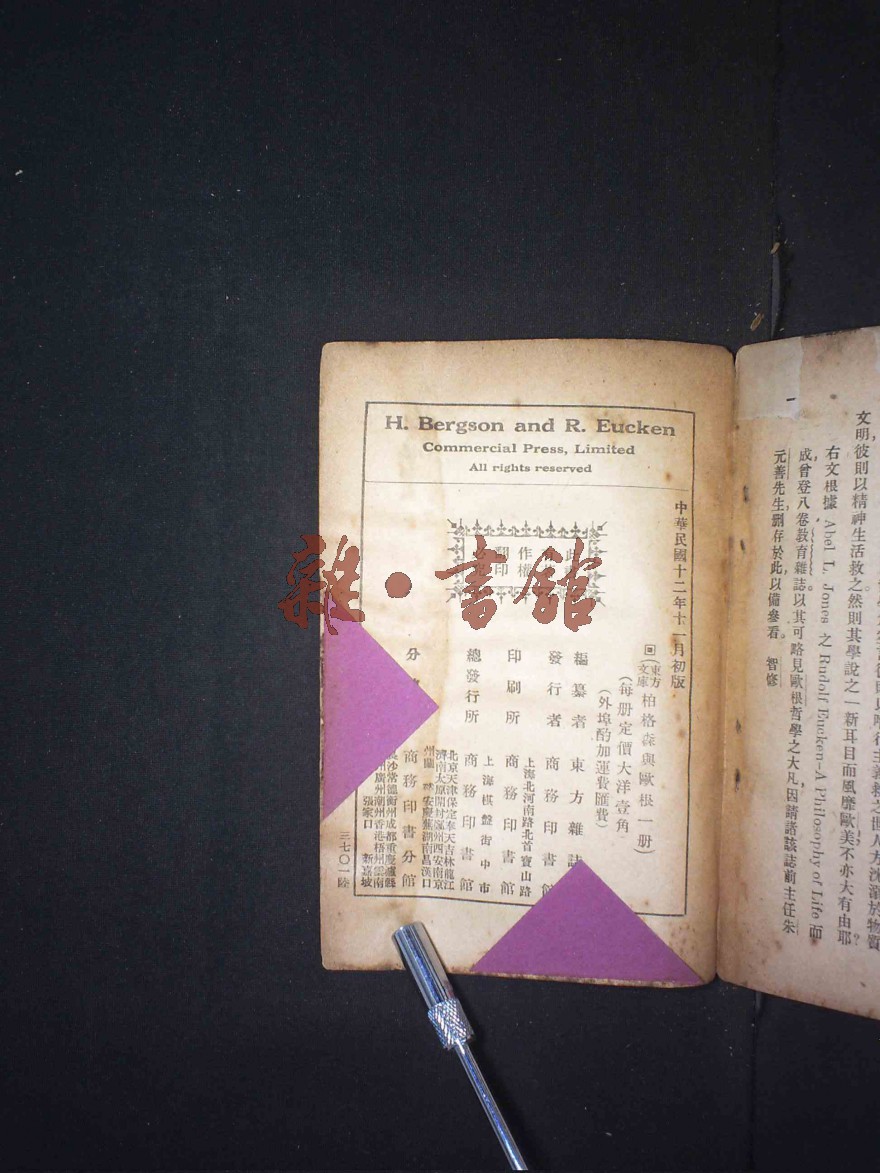 文明彼則以精神生活救之然則其學說之一新耳目而風靡歐美不亦大有由耶？
右文根據 Abel L. Jones 之 Rudolf Eucken-A Philosophy of Life 而
成，曾登八卷教育雜誌。以其可略見歐根哲學之大凡，因請諸該誌前主任朱
元善先生，删存於此，以備參看。 智修
H. Bergson and R. Eucken
Commercial Press, Limited
All rights reserved
中華民國十二年十一月初版
(東方文庫)柏格森與歐根一册)
(每册定價大洋壹角
(外埠酌加運費匯費)
編纂者 東方雜誌
發行者 商務印書館
上海北河南路北首寶山路
印刷所 商務印書館
上海棋盤街中市
總發行所 商務印書館
分
商務印書分館
北京天津保定奉天吉林龍江
濟南太原開封鄭州西安南京
安慶蕪湖南昌漢口
長沙常德衡州成都重慶瀘縣
廣州潮州香港梧州雲南
張家口 新嘉坡
作權
翻印
必究
三七〇一陸
雜·書館